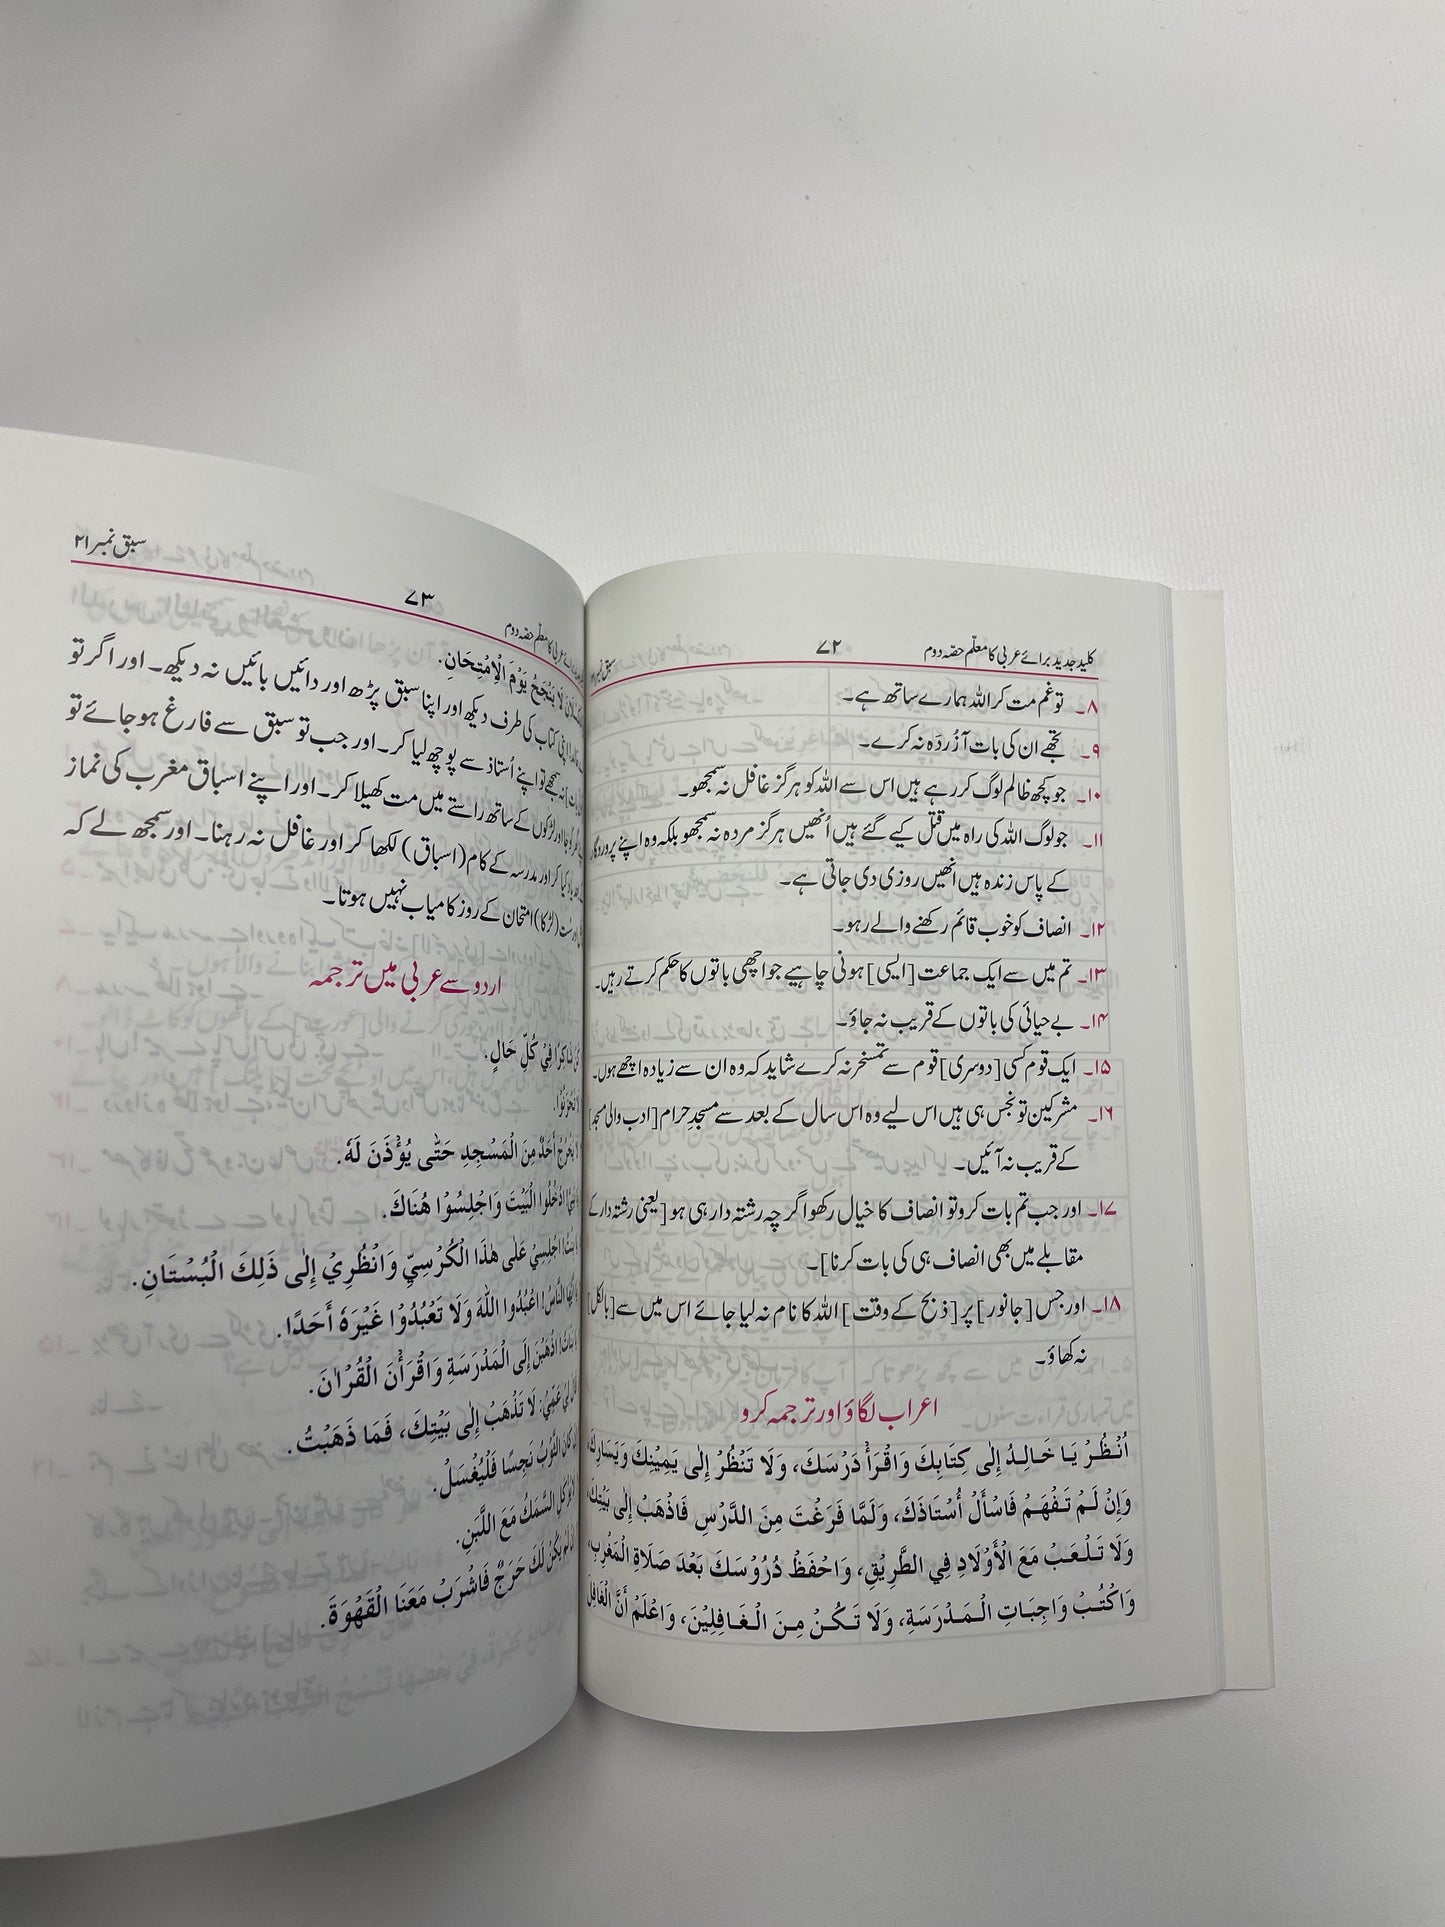 کلید جدید برائے عربی کا معلّم حصّہ دوم ۷۲ سبق نمبر
۸۔ تو غم مت کر اللہ ہمارے ساتھ ہے۔
۹۔ تجھے ان کی بات آزُردَہ نہ کرے۔
۱۰۔ جو کچھ ظالم لوگ کر رہے ہیں اس سے اللہ کو ہرگز غافل نہ سمجھو۔
۱۱۔ جو لوگ اللہ کی راہ میں قتل کیے گئے ہیں اُنھیں ہرگز مردہ نہ سمجھو بلکہ وہ اپنے پروردگار
کے پاس زندہ ہیں انھیں روزی دی جاتی ہے۔
۱۲۔ انصاف کو خوب قائم رکھنے والے رہو۔
۱۳۔ تم میں سے ایک جماعت [ایسی] ہونی چاہیے جو اچھی باتوں کا حکم کرتے رہیں۔
۱۴۔ بے حیائی کی باتوں کے قریب نہ جاؤ۔
۱۵۔ ایک قوم کسی [دوسری] قوم سے تمسخر نہ کرے شاید کہ وہ ان سے زیادہ اچھے ہوں۔
۱۶۔ مشرکین تو نجس ہی ہیں اس لیے وہ اس سال کے بعد سے مسجدِ حرام [ادب والی مسجد]
کے قریب نہ آئیں۔
۱۷۔ اور جب تم بات کرو تو انصاف کا خیال رکھو اگرچہ رشتہ دار ہی ہو [یعنی رشتہ دار کے
مقابلے میں بھی انصاف ہی کی بات کرنا]۔
۱۸۔ اور جس [جانور] پر [ذبح کے وقت] اللہ کا نام نہ لیا جائے اس میں سے [بالکل]
نہ کھاؤ۔
اعراب لگاؤ اور ترجمہ کرو
اُنْظُرْ يَا خَالِدُ إِلٰى كِتَابِكَ وَاقْرَأْ دَرْسَكَ، وَلَا تَنْظُرْ إِلٰى يَمِيْنِكَ وَيَسَارِكَ،
وَإِنْ لَمْ تَفْهَمْ فَاسْأَلْ أُسْتَاذَكَ، وَلَمَّا فَرَغْتَ مِنَ الدَّرْسِ فَاذْهَبْ إِلٰى بَيْتِكَ،
وَلَا تَلْعَبْ مَعَ الْأَوْلَادِ فِي الطَّرِيْقِ، وَاحْفَظْ دُرُوْسَكَ بَعْدَ صَلَاةِ الْمَغْرِبِ،
وَاكْتُبْ وَاجِبَاتِ الْمَدْرَسَةِ، وَلَا تَكُنْ مِنَ الْغَافِلِيْنَ، وَاعْلَمْ أَنَّ الْغَافِلَ
برائے عربی کا معلّم حصّہ دوم ۷۳ سبق نمبر ۲۱
لَا يَنْجَحُ يَوْمَ الْاِمْتِحَانِ.
اپنی کتاب کی طرف دیکھ اور اپنا سبق پڑھ اور دائیں بائیں نہ دیکھ۔ اور اگر تو
نہ سمجھے تو اپنے اُستاذ سے پوچھ لیا کر۔ اور جب تو سبق سے فارغ ہو جائے تو
اور لڑکوں کے ساتھ راستے میں مت کھیلا کر۔ اور اپنے اسباق مغرب کی نماز
یاد کیا کر اور مدرسہ کے کام (اسباق) لکھا کر اور غافل نہ رہنا۔ اور سمجھ لے کہ
(لڑکا) امتحان کے روز کامیاب نہیں ہوتا۔
اردو سے عربی میں ترجمہ
كُنْ شَاكِرًا فِيْ كُلِّ حَالٍ.
لَا تَحْزَنُوْا.
لَا يَخْرُجْ أَحَدٌ مِنَ الْمَسْجِدِ حَتّٰى يُؤْذَنَ لَهٗ.
ادْخُلُوا الْبَيْتَ وَاجْلِسُوْا هُنَاكَ.
اجْلِسِيْ عَلٰى هٰذَا الْكُرْسِيِّ وَانْظُرِيْ إِلٰى ذَلِكَ الْبُسْتَانِ.
أَيُّهَا النَّاسُ! اعْبُدُوا اللّٰهَ وَلَا تَعْبُدُوْا غَيْرَهٗ أَحَدًا.
اذْهَبْنَ إِلَى الْمَدْرَسَةِ وَاقْرَأْنَ الْقُرْاٰنَ.
لِيْ عَمِّيْ: لَا تَذْهَبْ إِلٰى بَيْتِكَ، فَمَا ذَهَبْتُ.
كَانَ الثَّوْبُ نَجِسًا فَلْيُغْسَلْ.
السَّمَكُ مَعَ اللَّبَنِ.
لَمْ يَكُنْ لَكَ حَرَجٌ فَاشْرَبْ مَعَنَا الْقَهْوَةَ.